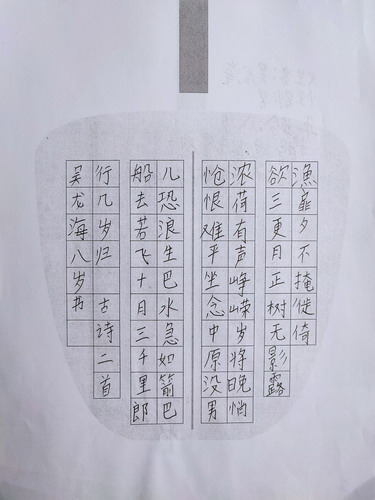 漁扉夕不掩徙倚
欲三更月正树无影露
浓荷有声峥嵘岁将晚悄
怆恨难平坐念中原没男
儿恐浪生巴水急如箭巴
船去若飞十月三千里郎
行几岁归 古诗二首
吴龙海八岁书